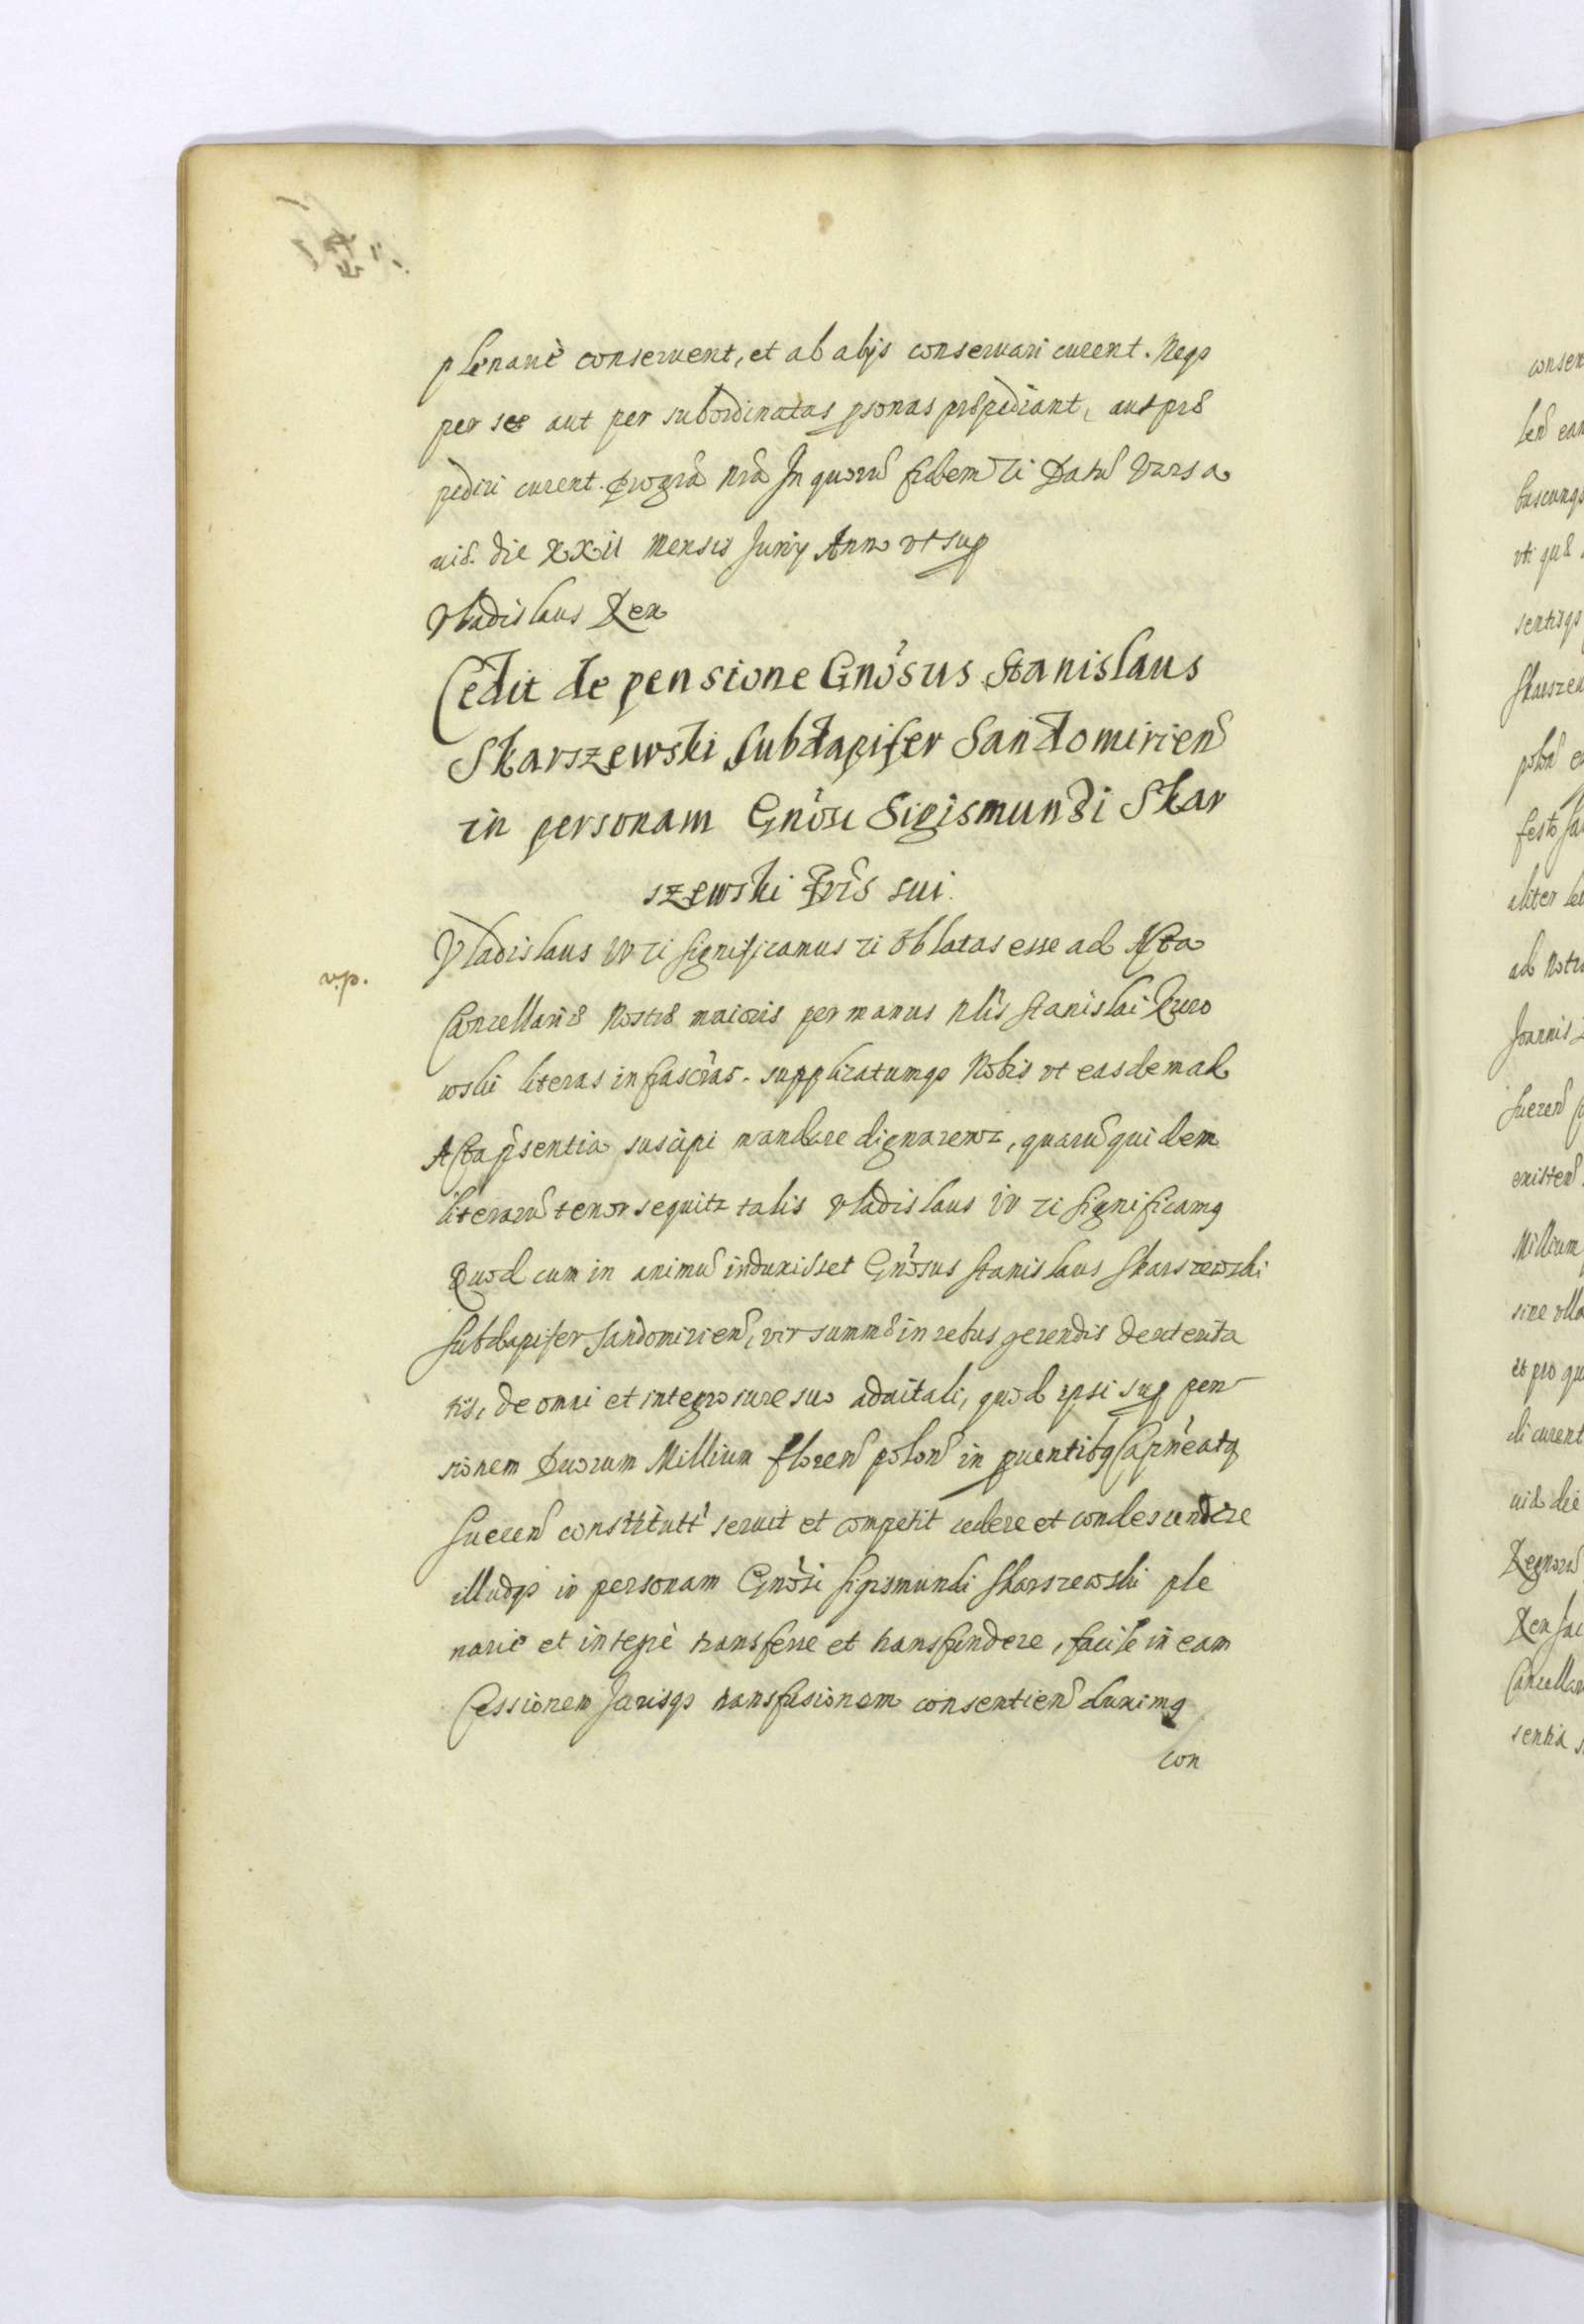 plenariè conseruent, et ab alijs conseruari curent. Neqꝫ
per se aut per subordinatas psonas prępediant, aut prę
pediri curent. pro grã nrã In quorũ fidem ℛi Datũ Varsa
uię. die XXII Mensis Junij Anno vt sup
Vladislaus Rex
Cedit de pensione Gnõsus Stanislaus
Skarszewski Subdapifer Sandomirien̄
in personam Gnõsi Sigismundi Skar
szewski Fr̃is sui.
v.p.
Vladislaus IV ℛi significamus ℛi Oblatas esse ad Acta
Cancellarię Nostrę maioris per manus Nlis Stanislai Kuro
wski literas infrascr̃as. supplicatumqꝫ Nobis vt easdem ad
Acta p̃sentia suscipi mandare dignaremr, quarũ quidem
literarũ tenor sequitr talis Vladislaus IV ℛi significamꝰ
Quod cum in animũ induxisset Gnõsus Stanislaus Skarszewski
Subdapifer Sandomirien̄, vir summę in rebus gerendis dexterita
tis, de omni et integro iure suo aduitali, quod ipsi sup pen
sionem Duorum Millium floren̄ polon̄ in puentibꝰ Capneatꝰ
Suecen̄ constitutã seruit et competit cedere et condescendere
illudqꝫ in personam Gnõsi Sigismundi Skarszewski ple
nariè et integrè transferre et transfundere, facile in eam
Cessionem Jurisqꝫ transfusionem consentien̄ duximꝰ
con